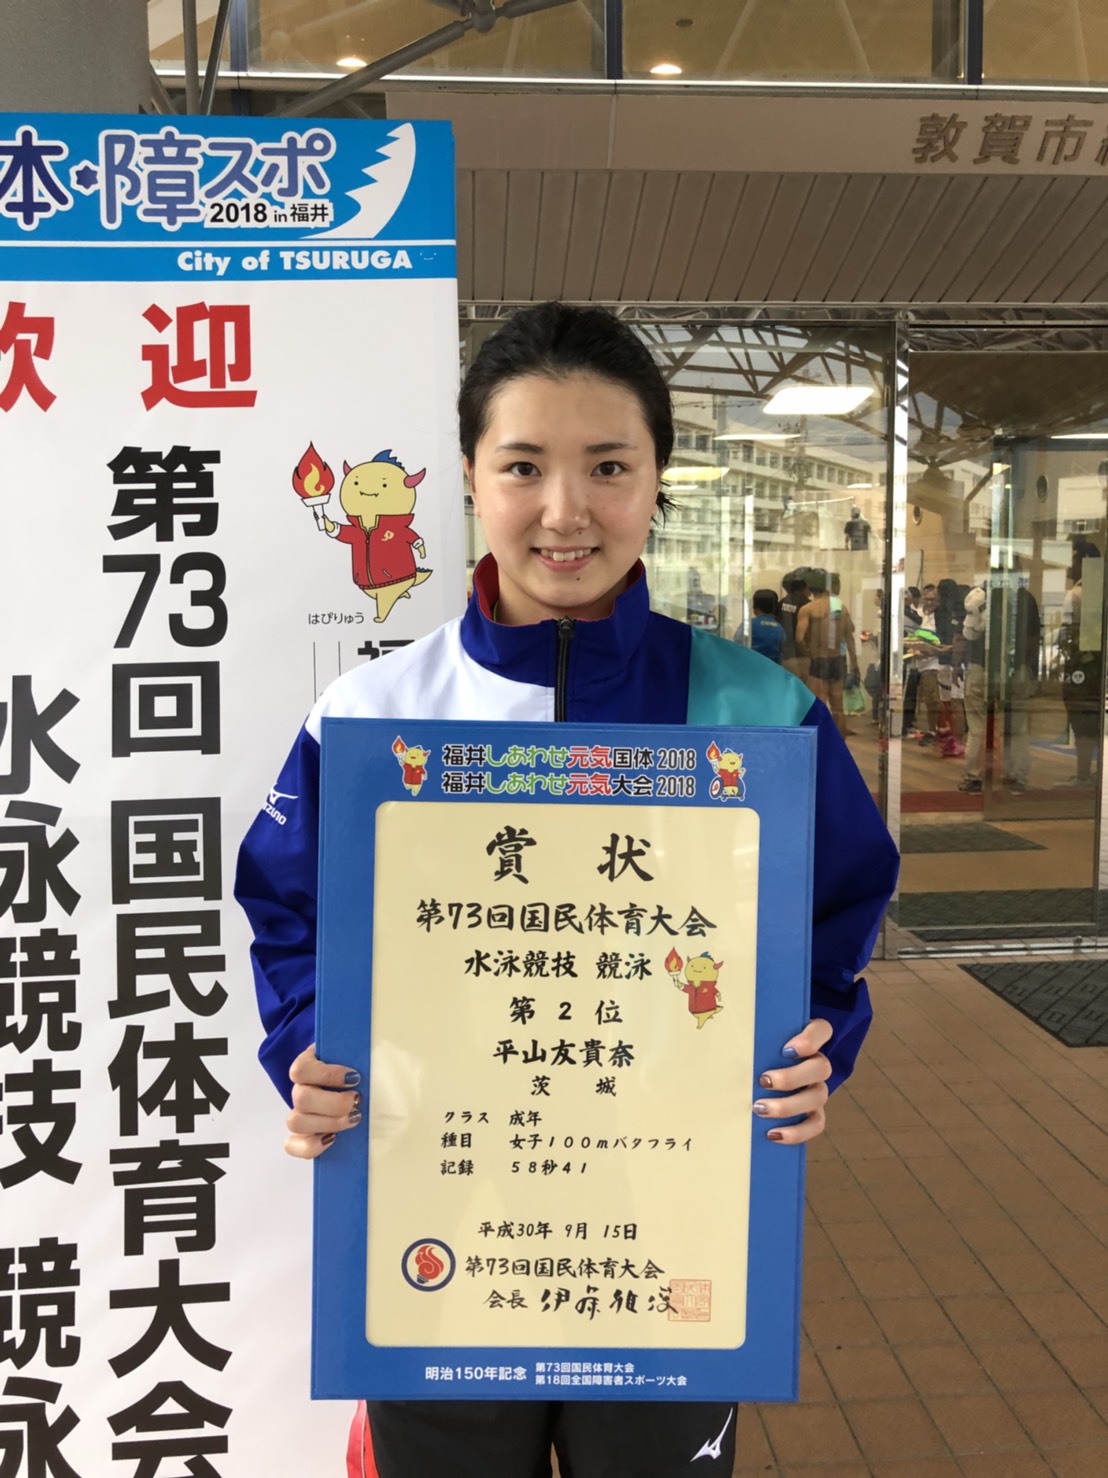 本・障スポ
2018 in 福井
City of TSURUGA
敦賀市
歓迎
第73回 国民体育大会
水泳競技 競泳
はぴりゅう
MIZUNO
福井しあわせ元気国体2018
福井しあわせ元気大会2018
賞 状
第73回国民体育大会
水泳競技 競泳
第 2 位
平山友貴奈
茨 城
クラス 成年
種目 女子100mバタフライ
記録 58秒41
平成30年 9月 15日
第73回国民体育大会
会長 伊藤雅俊
明治150年記念
第73回国民体育大会
第18回全国障害者スポーツ大会